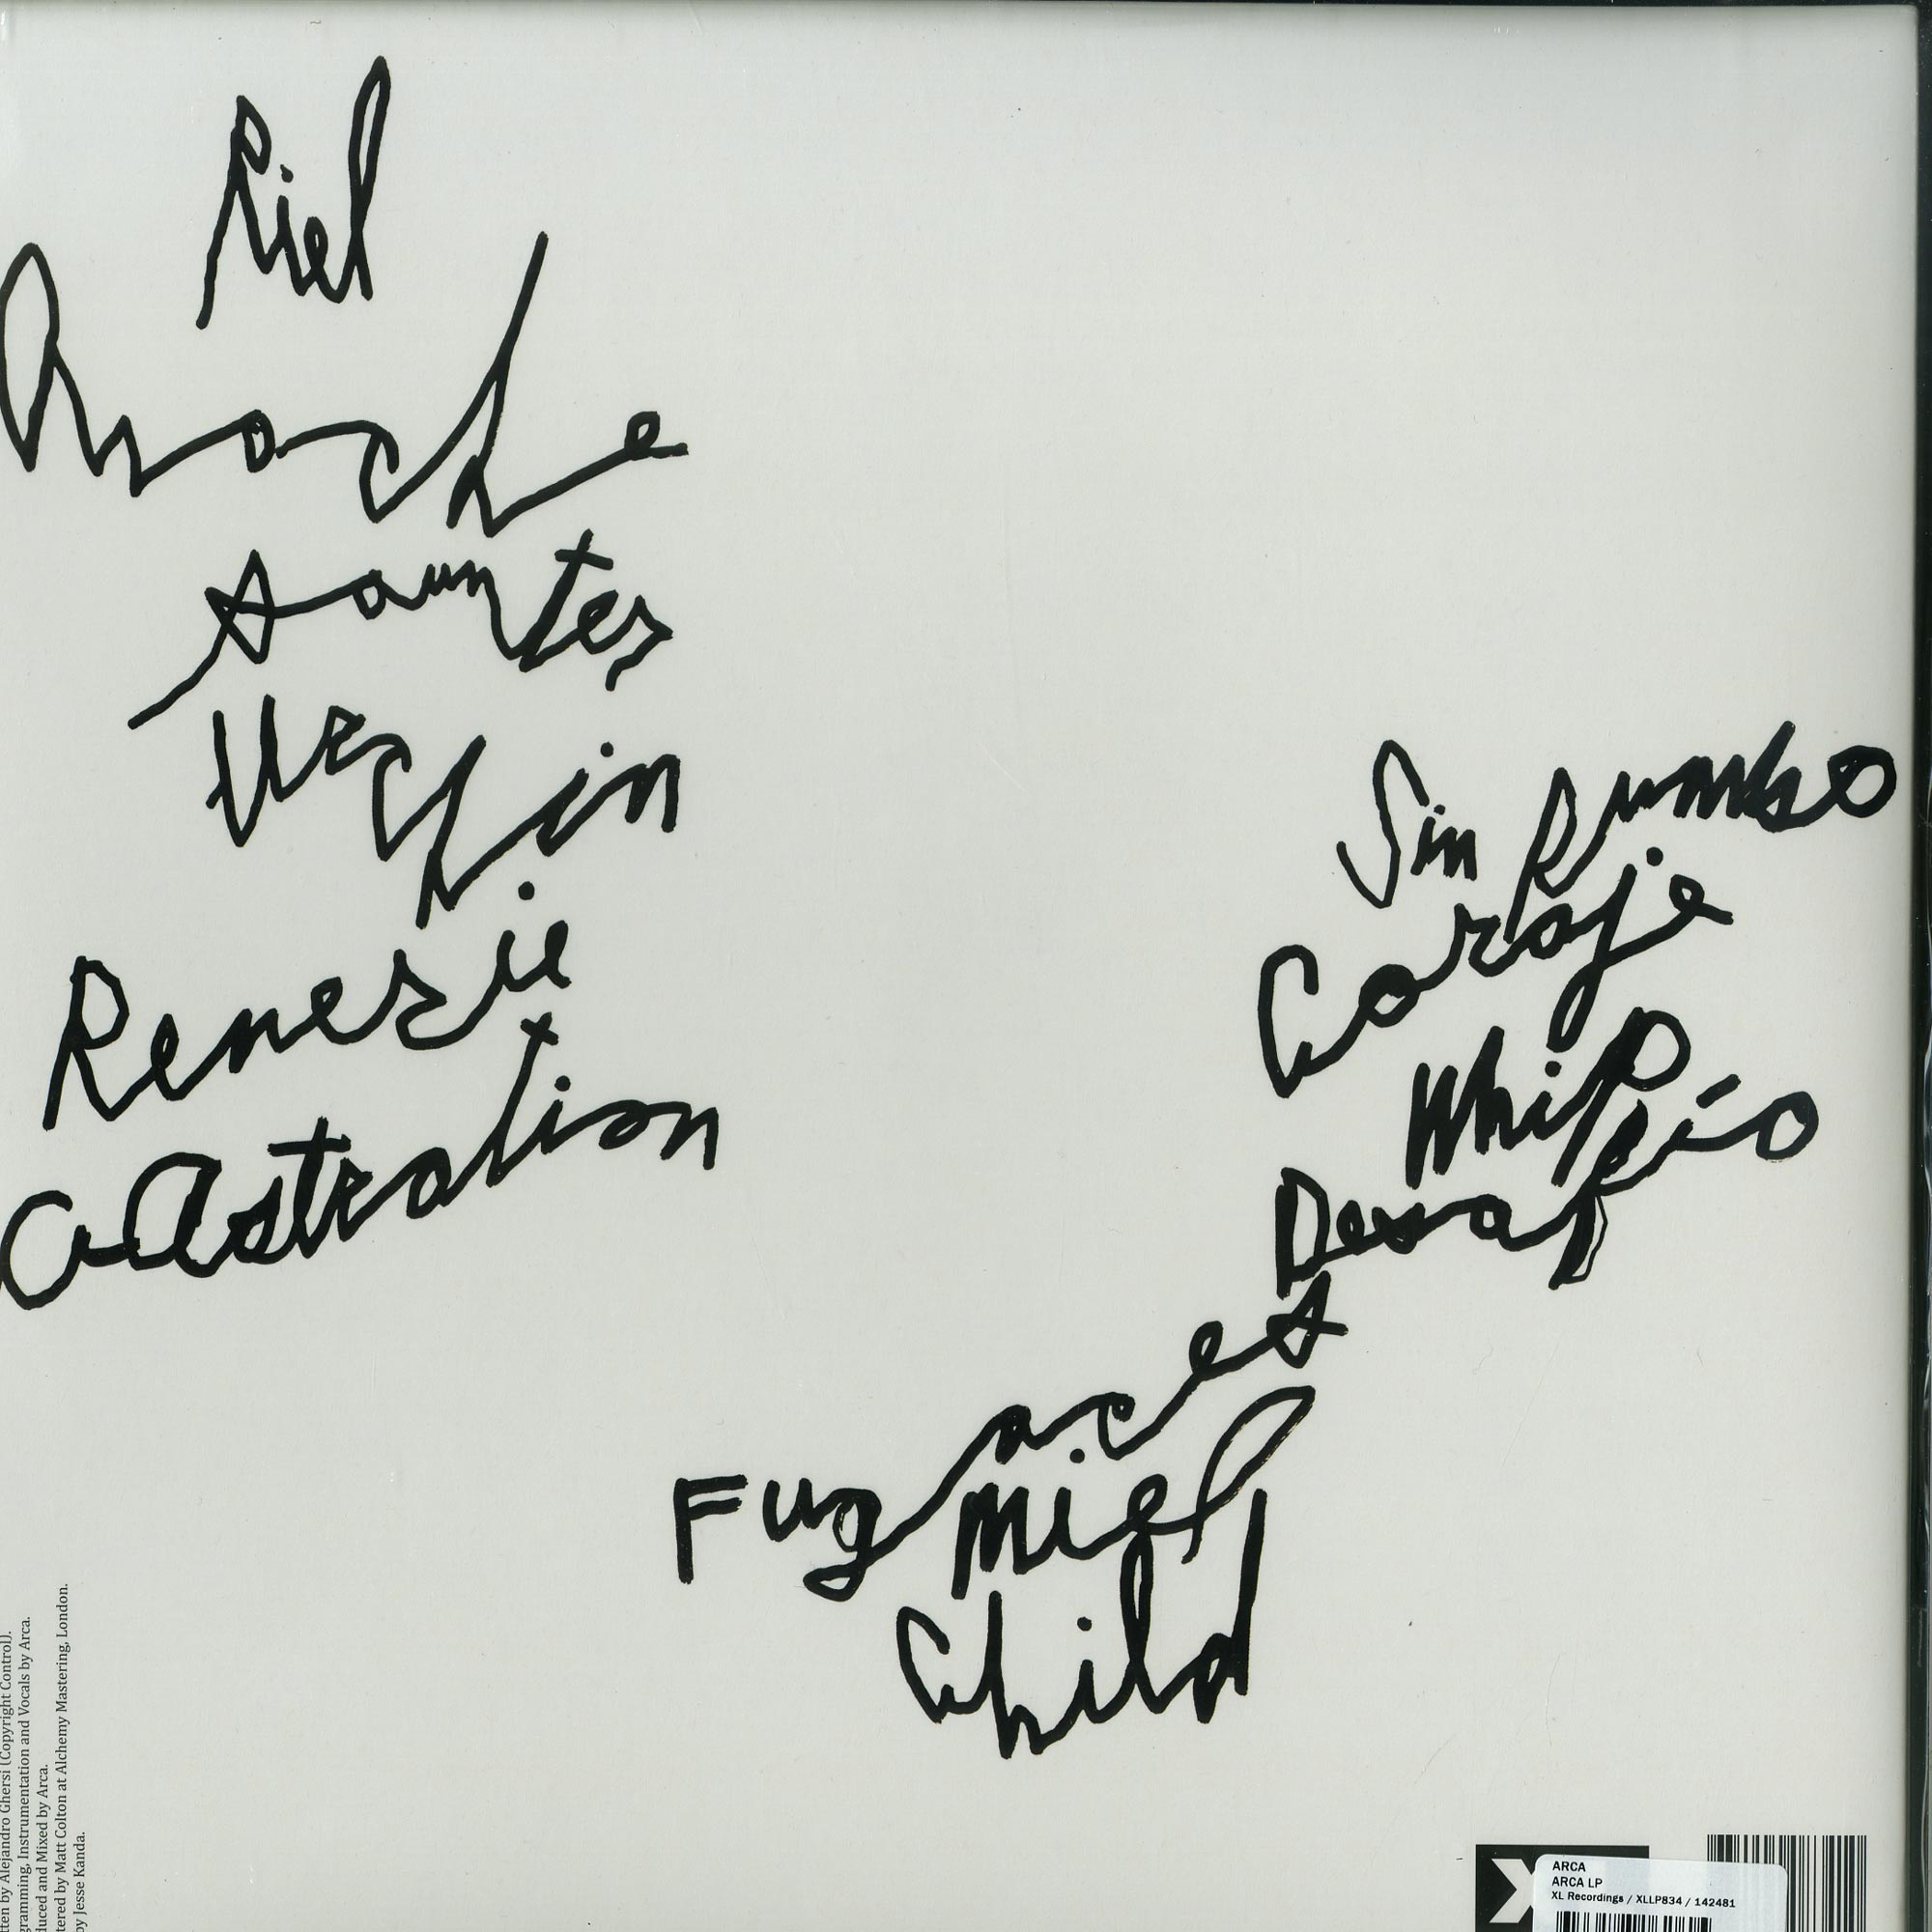 Piel
Anoche
Saunter
Urchin
Reverie
Castration
Sin Rumbo
Coraje
Whip
Desafío
Fugaces
Miel
Child
tten by Alejandro Ghersi (Copyright Control).
gramming, Instrumentation and Vocals by Arca.
duced and Mixed by Arca.
tered by Matt Colton at Alchemy Mastering, London.
by Jesse Kanda.
X
ARCA
ARCA LP
XL Recordings / XLLP834 / 142481